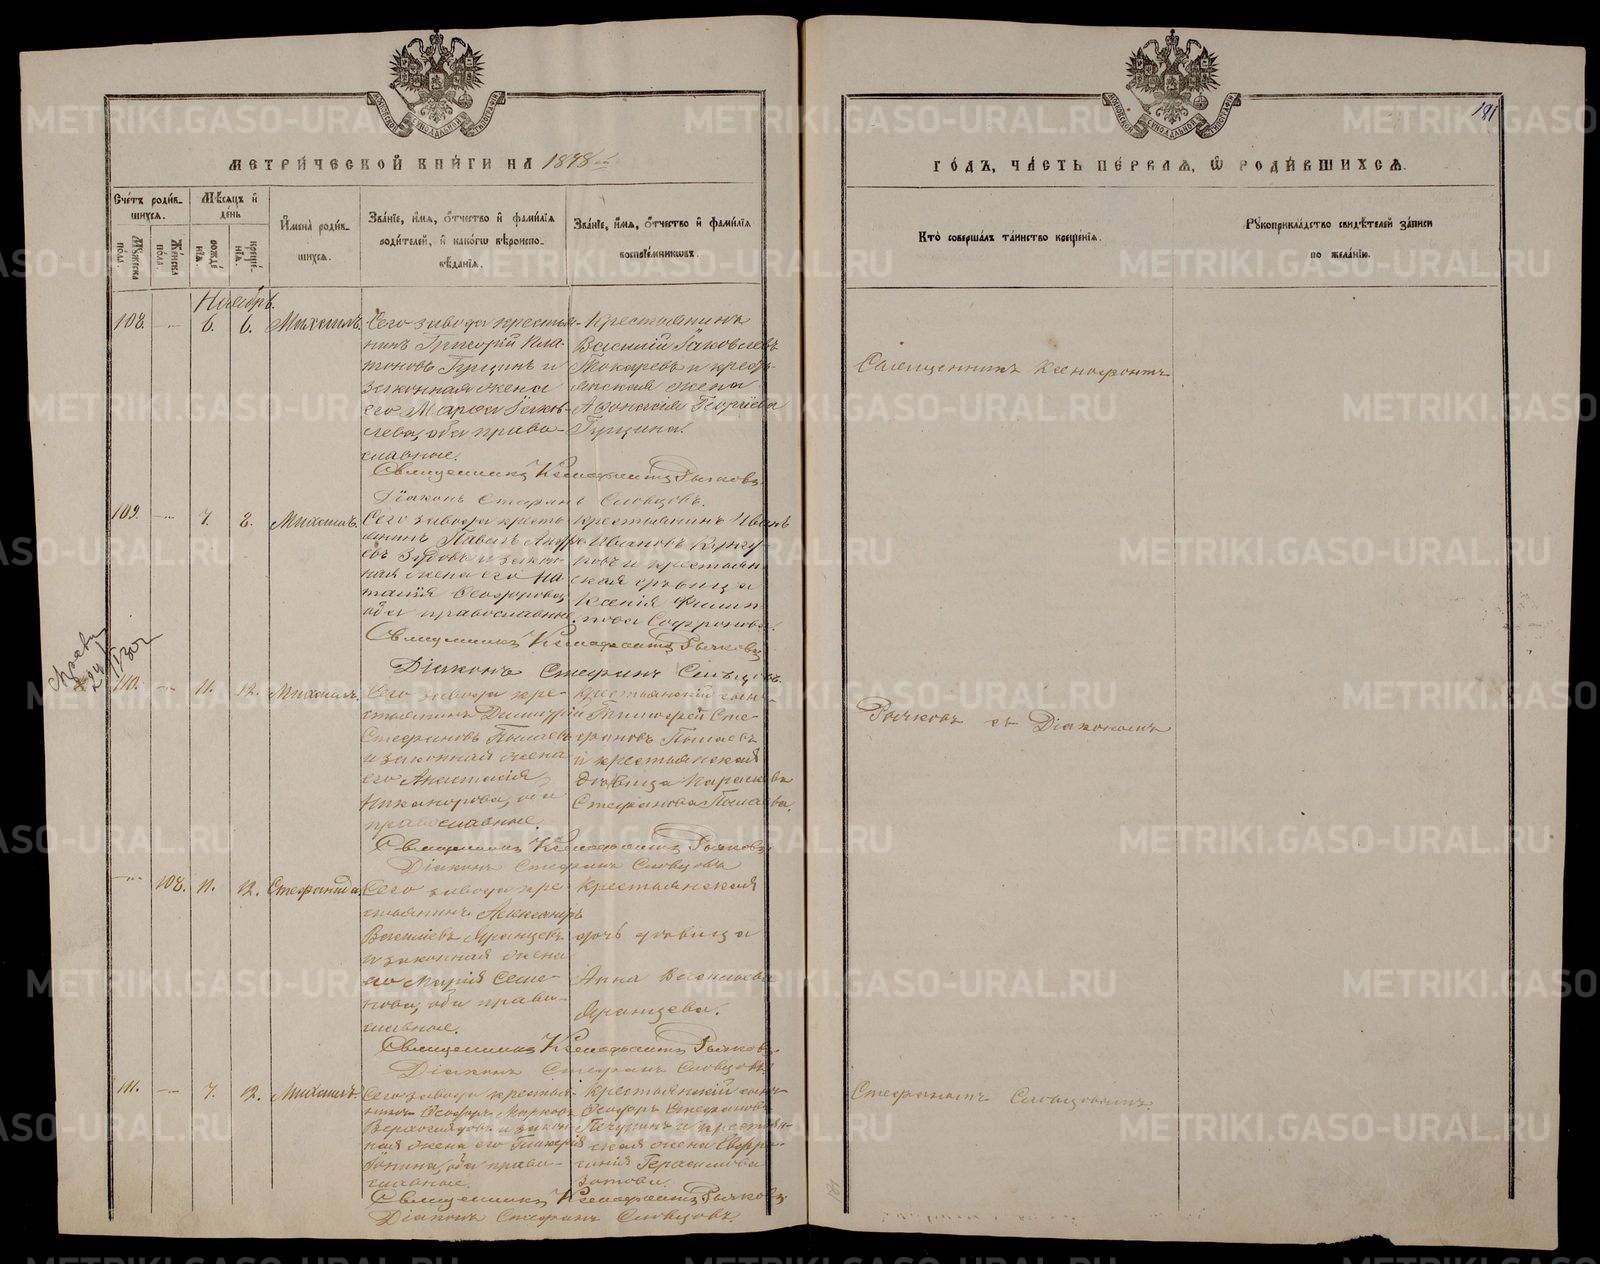 181
МЕТРИЧЕСКОЙ КНИГИ НА 1898
ГОДЪ, ЧАСТЬ ПЕРВАЯ, Ѡ РОДИВШИХСЯ.
Счетъ родившихся.
Мужеска пола.
Женска пола.
Мѣсяцъ и день
рожденія.
крещенія.
Имена родившихся.
Званіе, имя, отчество и фамилія
родителей, и какогѡ вѣроиспо-
вѣданія.
Званіе, имя, отчество и фамилія
воспріемниковъ.
Кто совершалъ таинство крещенія.
Рукоприкладство свидѣтелей записи
по желанію.
Ноябрь.
108. 6. 6. Михаилъ.
Сего завода крестья-
нинъ Григорій Пла-
тоновъ и
законная жена
его Марѳа Іаков-
лева, оба право-
славные.
Крестьянинъ
Василій Іаковлевъ
Токаревъ и кресть-
янская жена
Аѳонасія Георгіева
Священникъ Ксенофонтъ Рычковъ
Діаконъ Стефанъ Словцовъ.
109. 7. 8. Михаилъ.
Сего завода кресть-
янинъ Павелъ Андре-
евъ и закон-
ная жена его На-
талія Ѳеодорова,
оба православные.
Крестьянинъ Иванъ
Ивановъ
и крестьян-
ская дѣвица
Ксенія Филип-
пова Софронова.
Священникъ Ксенофонтъ Рычковъ
Діаконъ Стефанъ Словцовъ.
110. 11. 12. Михаилъ.
Сего завода кре-
стьянинъ Димитрій
Стефановъ Пылаевъ
и законная жена
его Анастасія
Никанорова, оба
православные.
Крестьянскій сынъ
Тимофей Сте-
фановъ Пылаевъ
и крестьянская
дѣвица Параскева
Стефанова Пылаева.
Священникъ Ксенофонтъ Рычковъ
Діаконъ Стефанъ Словцовъ
108. 11. 12. Стефанида.
Сего завода кре-
стьянинъ Александръ
Васильевъ Аранцевъ
и законная жена
его Марія Семе-
нова, оба право-
славные.
Крестьянская
дочь дѣвица
Анна Васильева
Аранцева.
Священникъ Ксенофонтъ Рычковъ
Діаконъ Стефанъ Словцовъ
111. 7. 12. Михаилъ.
Сего завода крестья-
нинъ Ѳеодоръ Марковъ
и закон-
ная жена его Гликерія
Іонина, оба право-
славные.
Крестьянскій сынъ
Ѳеодоръ Стефановъ
Пичугинъ и крестьян-
ская жена Евфро-
синія Герасимова
Зотова.
Священникъ Ксенофонтъ Рычковъ
Діаконъ Стефанъ Словцовъ.
Священникъ Ксенофонтъ
Рычковъ съ Діакономъ
Стефаномъ Словцовымъ.
METRIKI.GASO-URAL.RU